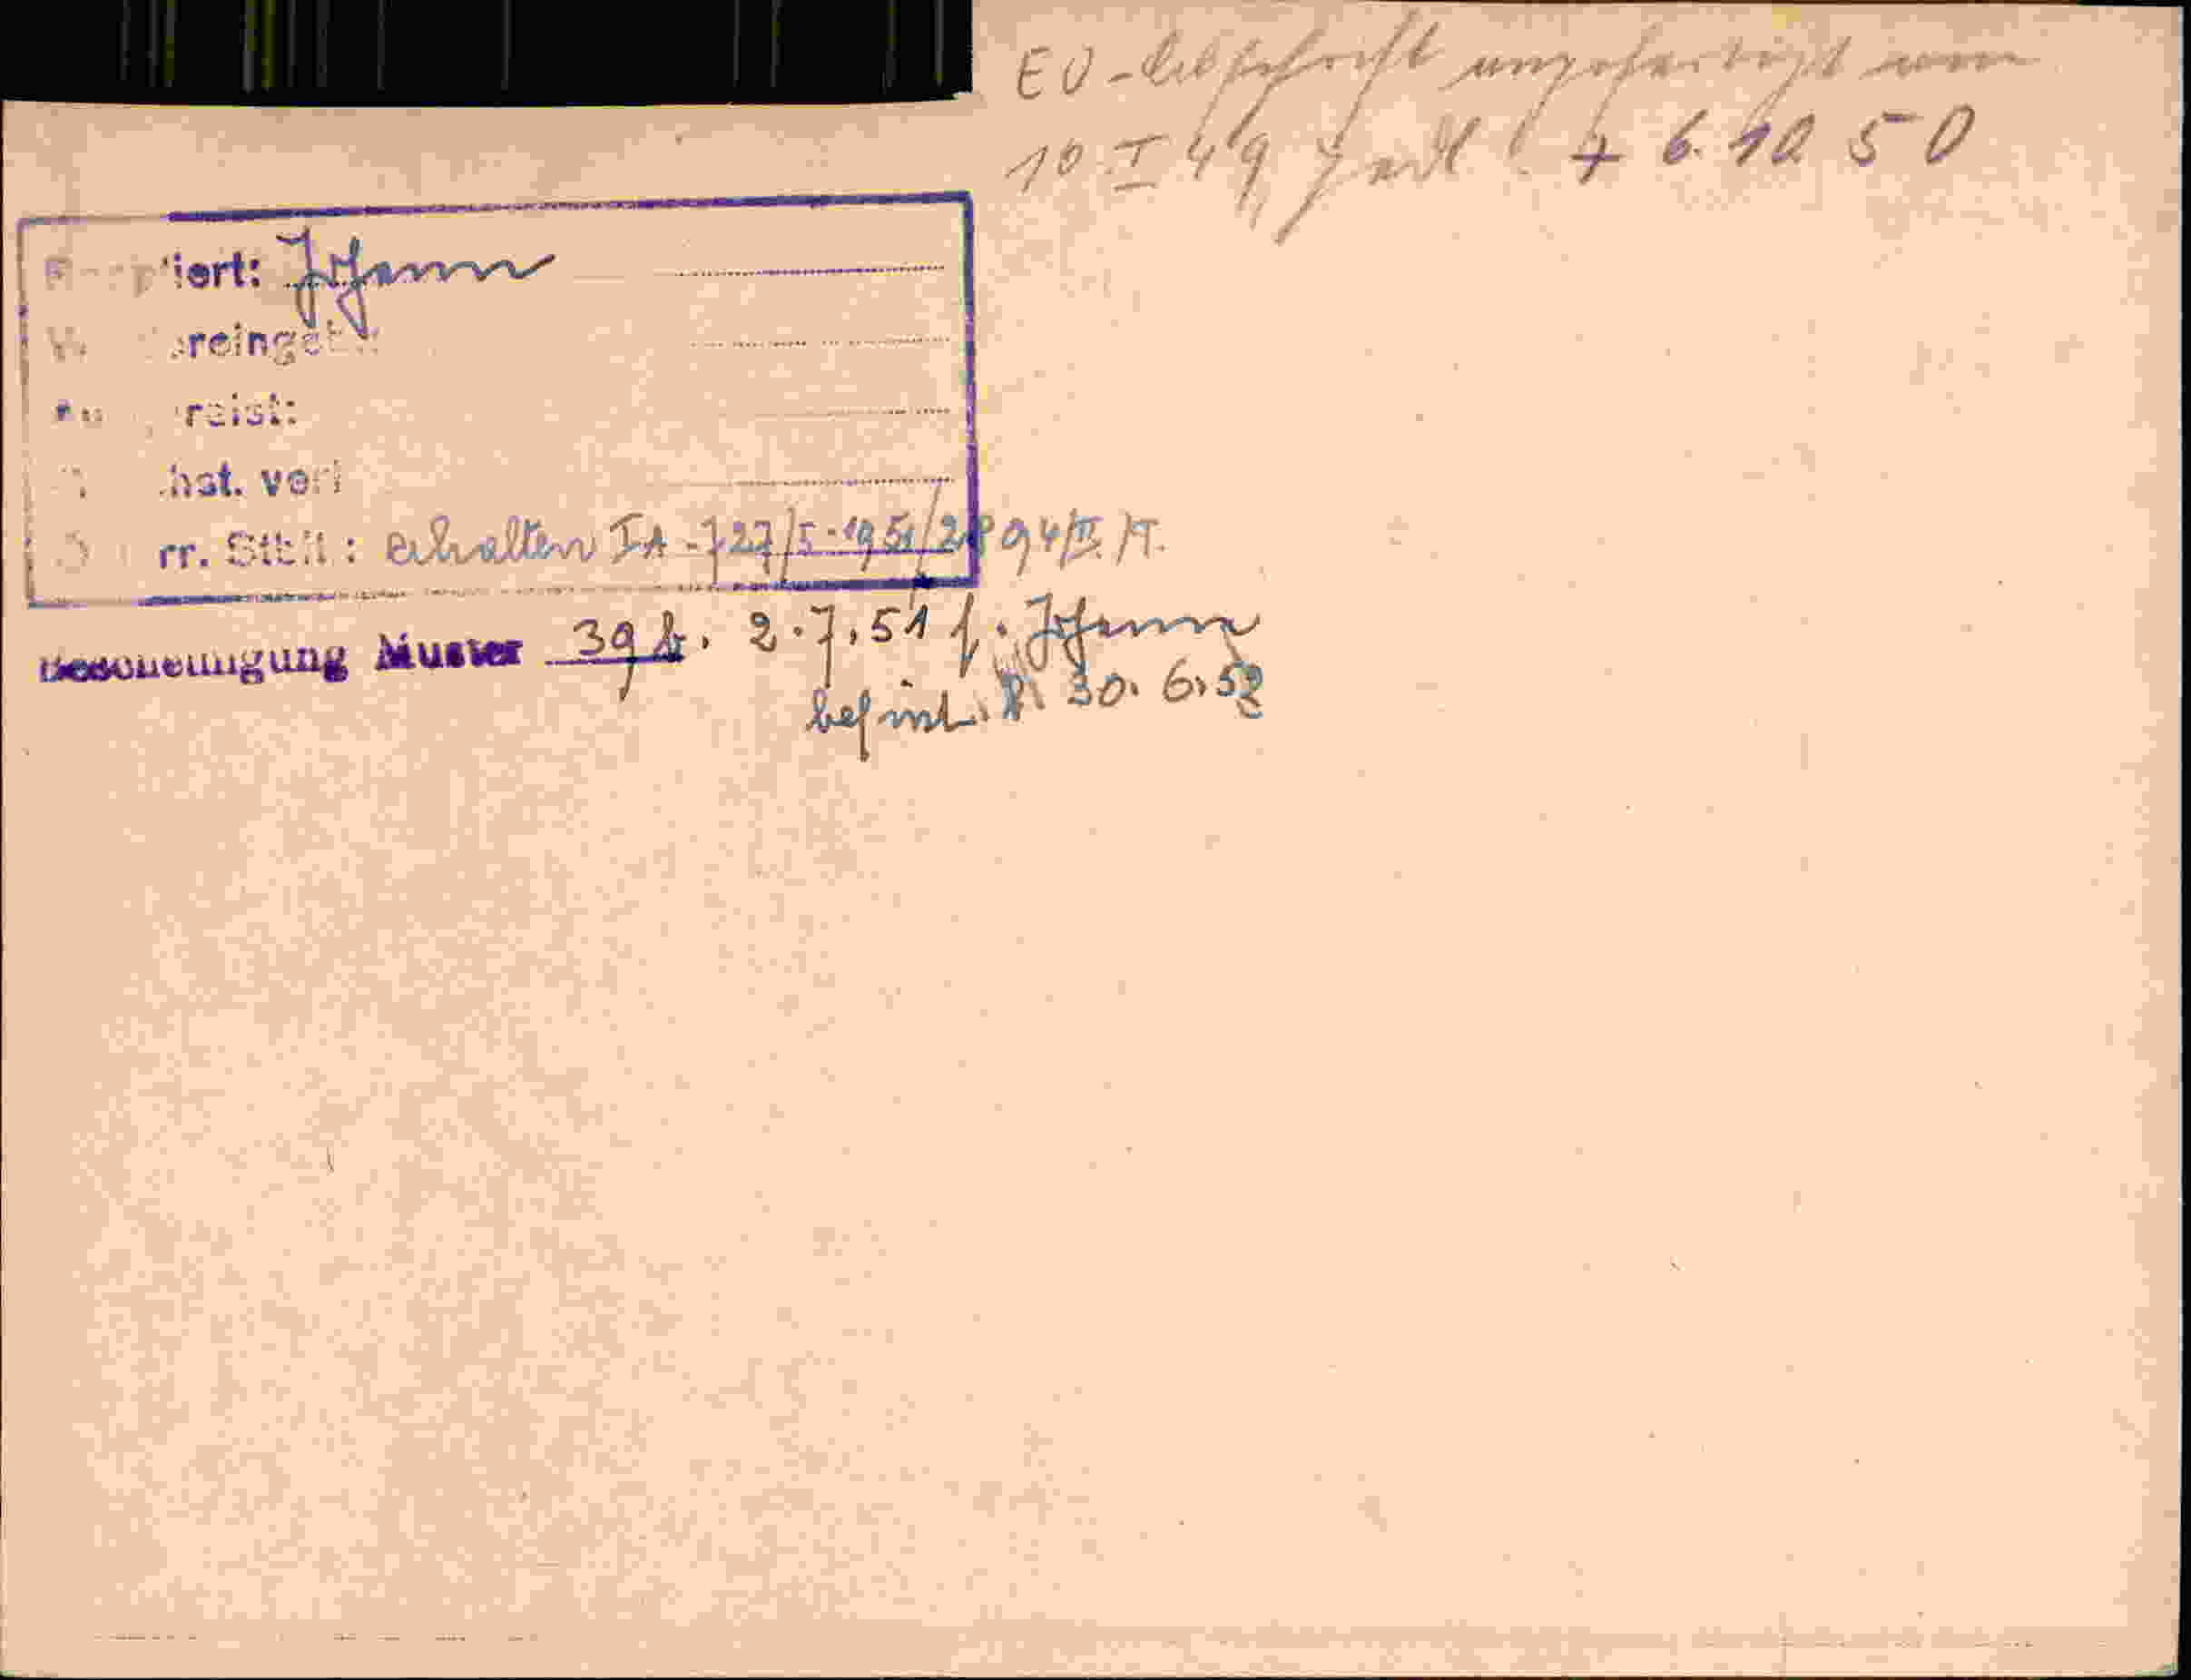 EU-Abschrift angefertigt vom
10. I 49 + 6. 10 50
iert: Johann
reinget
reist:
hst. verl
rr. Stbll: erhalten IA-727/5-1951/2894/II/T.
Bescheinigung Muster 39b. 2.7.51 f. Johann
befrist. 30.6.52